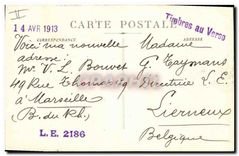 14 AVR 1913
CARTE POSTALE
Timbres au Verso
CORRESPONDANCE
ADRESSE
Voici ma nouvelle
adresse:
Mr. V. L. Bouvet
49 Rue
à Marseille
(B. du Rh.)
L.E. 2186
Madame
G. Taymans
Directrice S. E.
Lierneux
Belgique